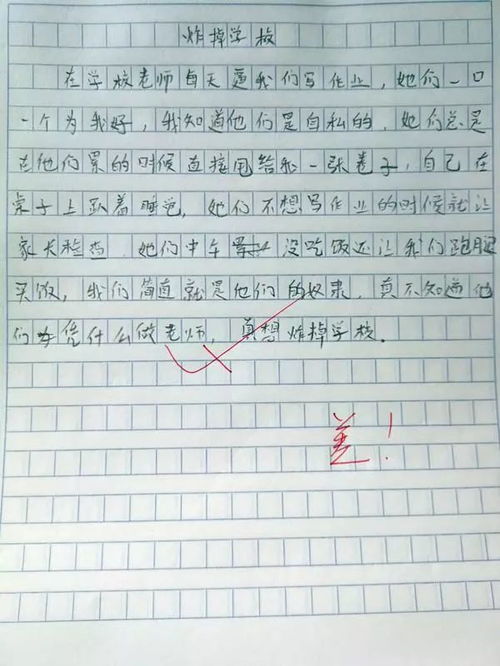 炸掉学校
在学校老师每天逼我们写作业，她们一口
一个为我好，我知道他们是自私的，她们总是
在他们累的时候直接甩给我一张卷子，自己在
桌子上趴着睡觉，她们不想写作业的时候就让
家长检查，她们中午 没吃饭还让我们跑腿
买饭，我们简直就是他们的奴隶，真不知道他
们凭什么做老师，真想炸掉学校。
差！